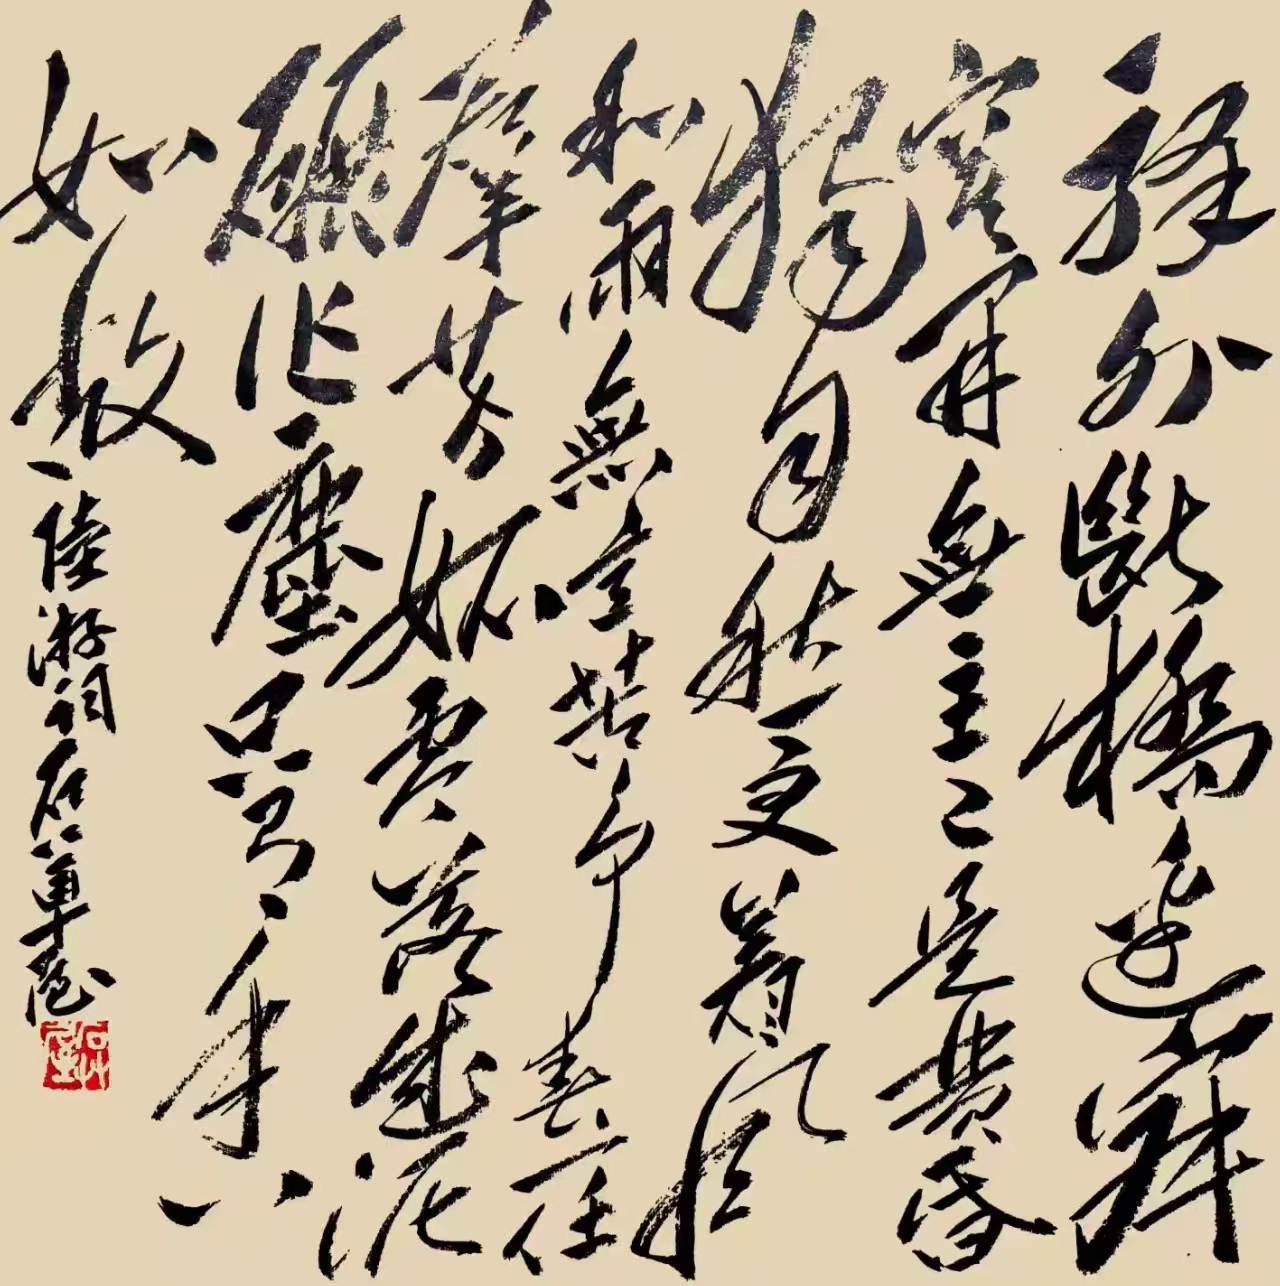 驛外斷橋邊寂
寞開無主已是黃昏
獨自愁更著風
和雨無意苦爭春一任
羣芳妒零落成泥
碾作塵只有香
如故
陸游詞